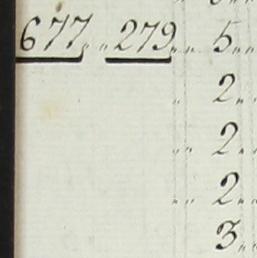 677 „ 279 „ 5 „
„ 2 „
„ 2 „
„ 2 „
3 „